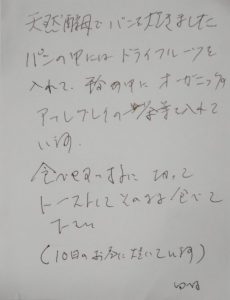 天然酵母でパンを焼きました
パンの中にはドライフルーツを
入れて、の中にオーガニック
アールグレイの茶葉を入れて
います。
食べやすい様に切って
トーストしてそのまま食べて
下さい
(10日のお昼に焼いています)